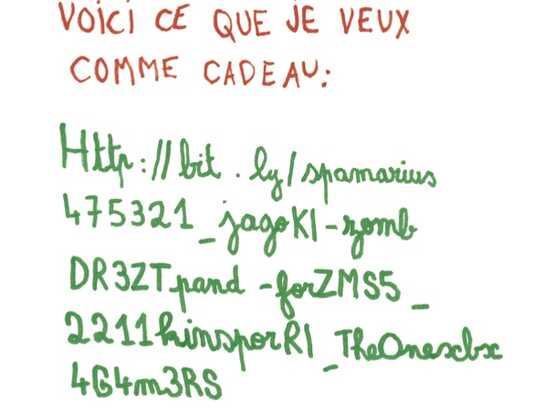 VOICI CE QUE JE VEUX
COMME CADEAU:
Http://bit.ly/spamarius
475321_jagoKI-zomb
DR3ZTpand-forZMS5_
2211kinsporRI_TheOnexbx
4G4m3RS